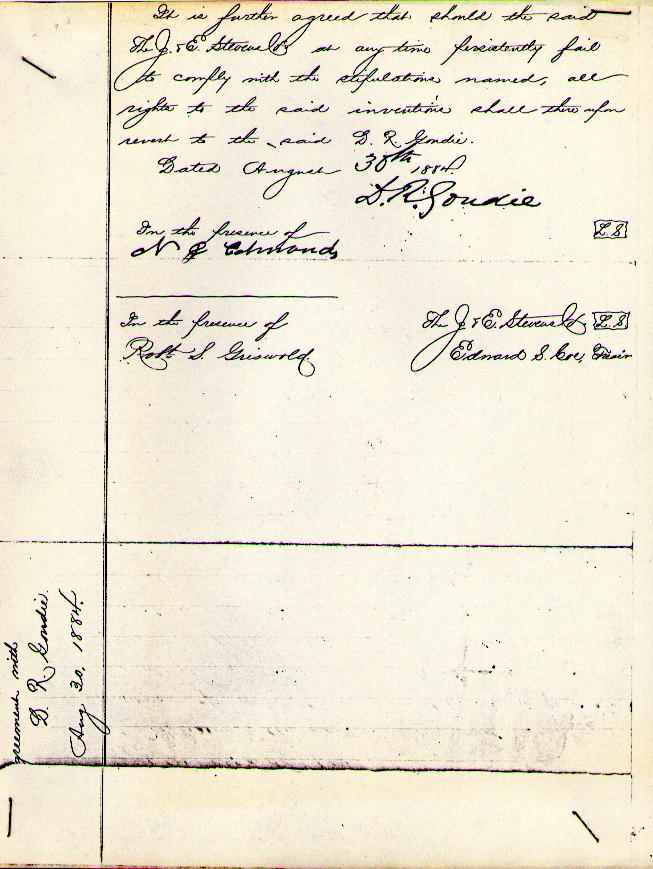 It is further agreed that should the said
The J. & E. Stevens Co at any time persistently fail
to comply with the stipulations named, all
rights to the said inventions shall there upon
revert to the said D. R. Goudie.
Dated August 30th 1884.
D. R. Goudie
In the presence of
L.S
N Edmonds
In the presence of
The J. & E. Stevens Co L.S
Robt S. Griswold
Edward S. Coe,
greement with
D. R. Goudie.
Aug 30, 1884.